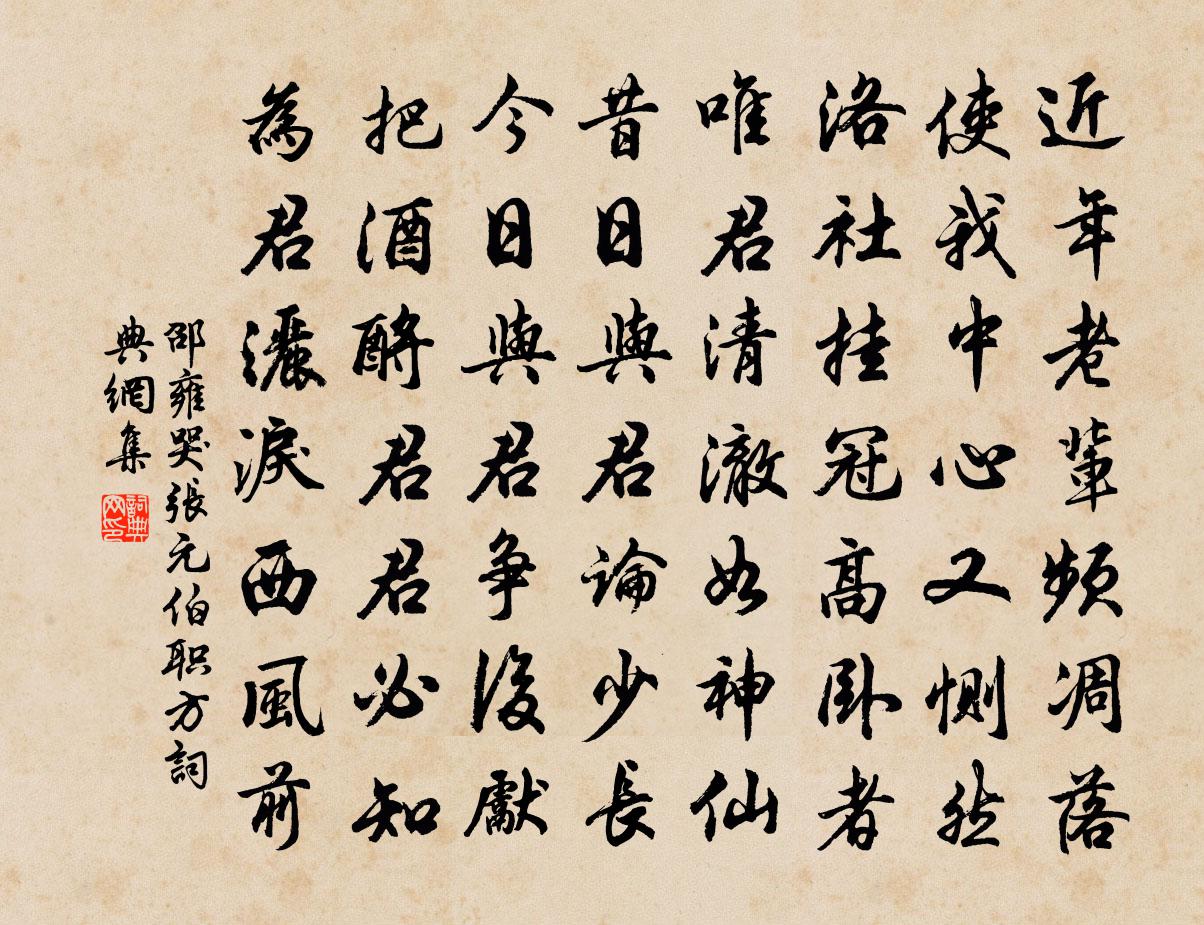 近年老輩頻凋落
使我中心又惻然
洛社挂冠高臥者
唯君清澈如神仙
昔日與君論少長
今日與君争後獻
把酒酹君君必知
為君灑淚西風前
邵雍哭張元伯职方詞
典網集
詞典
网印